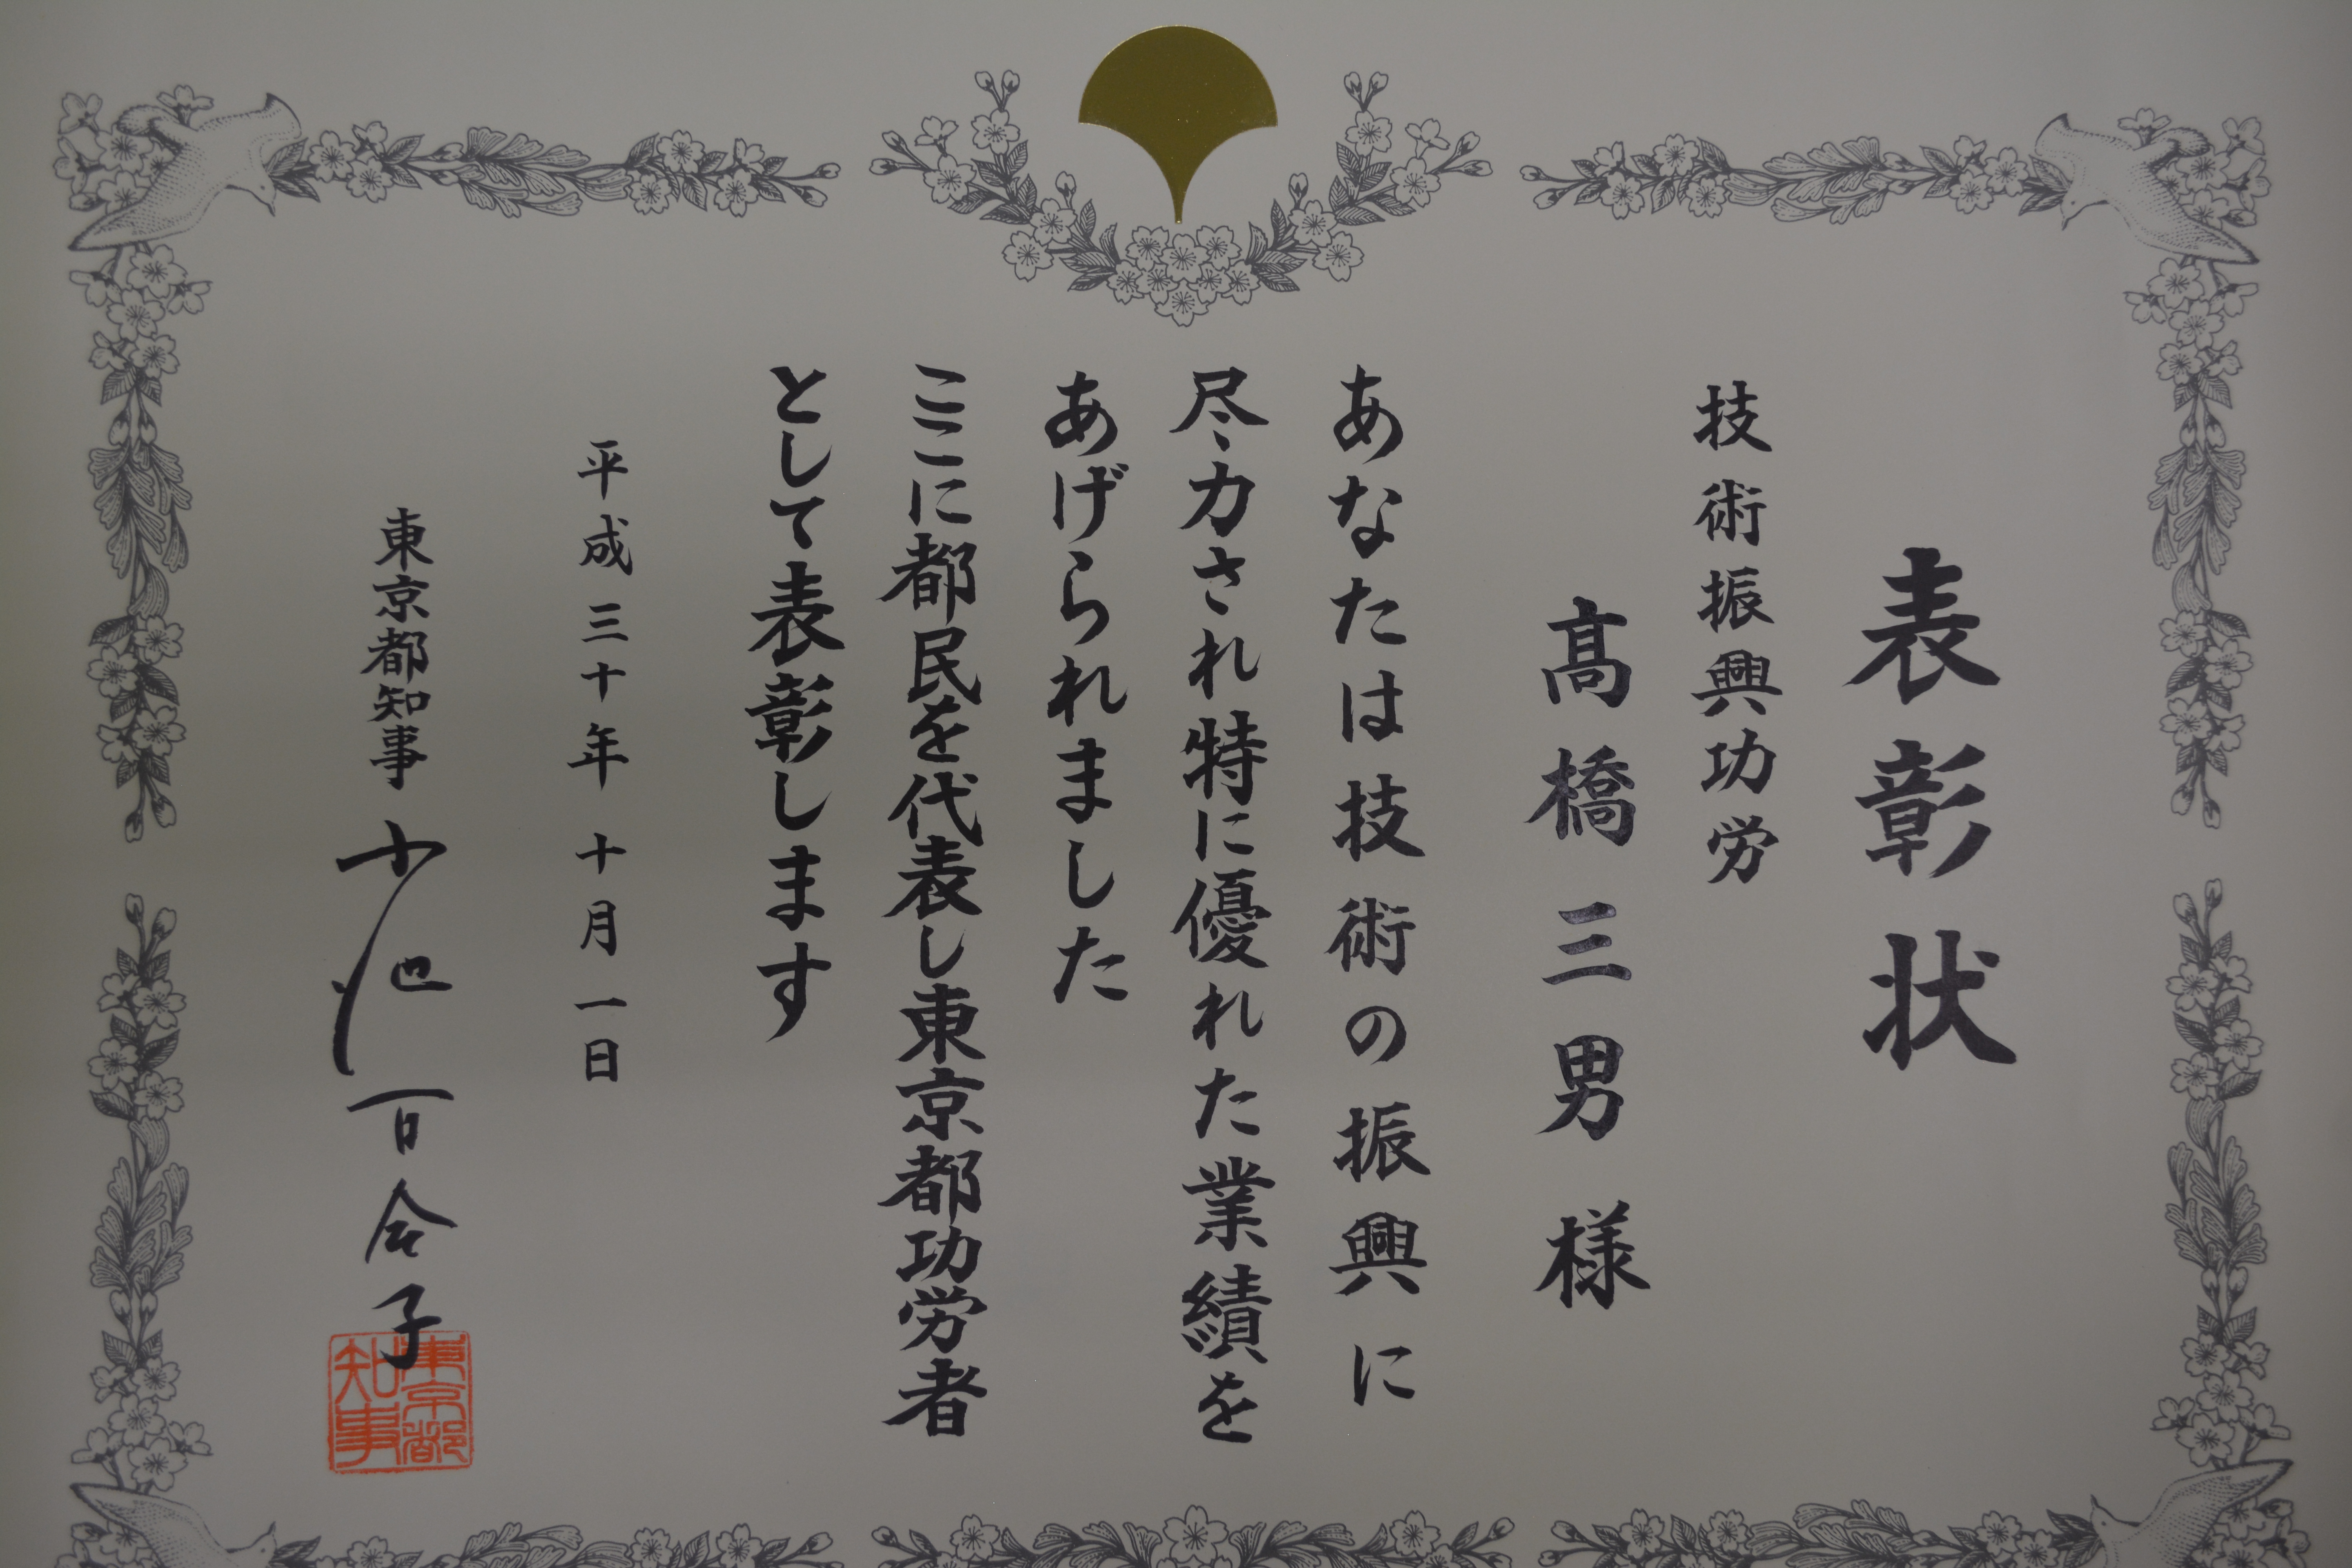 表彰状
技術振興功労
髙橋三男様
あなたは技術の振興に
尽力され特に優れた業績を
あげられました
ここに都民を代表し東京都功労者
として表彰します
平成三十年十月一日
東京都知事 小池百合子
東京都
知事